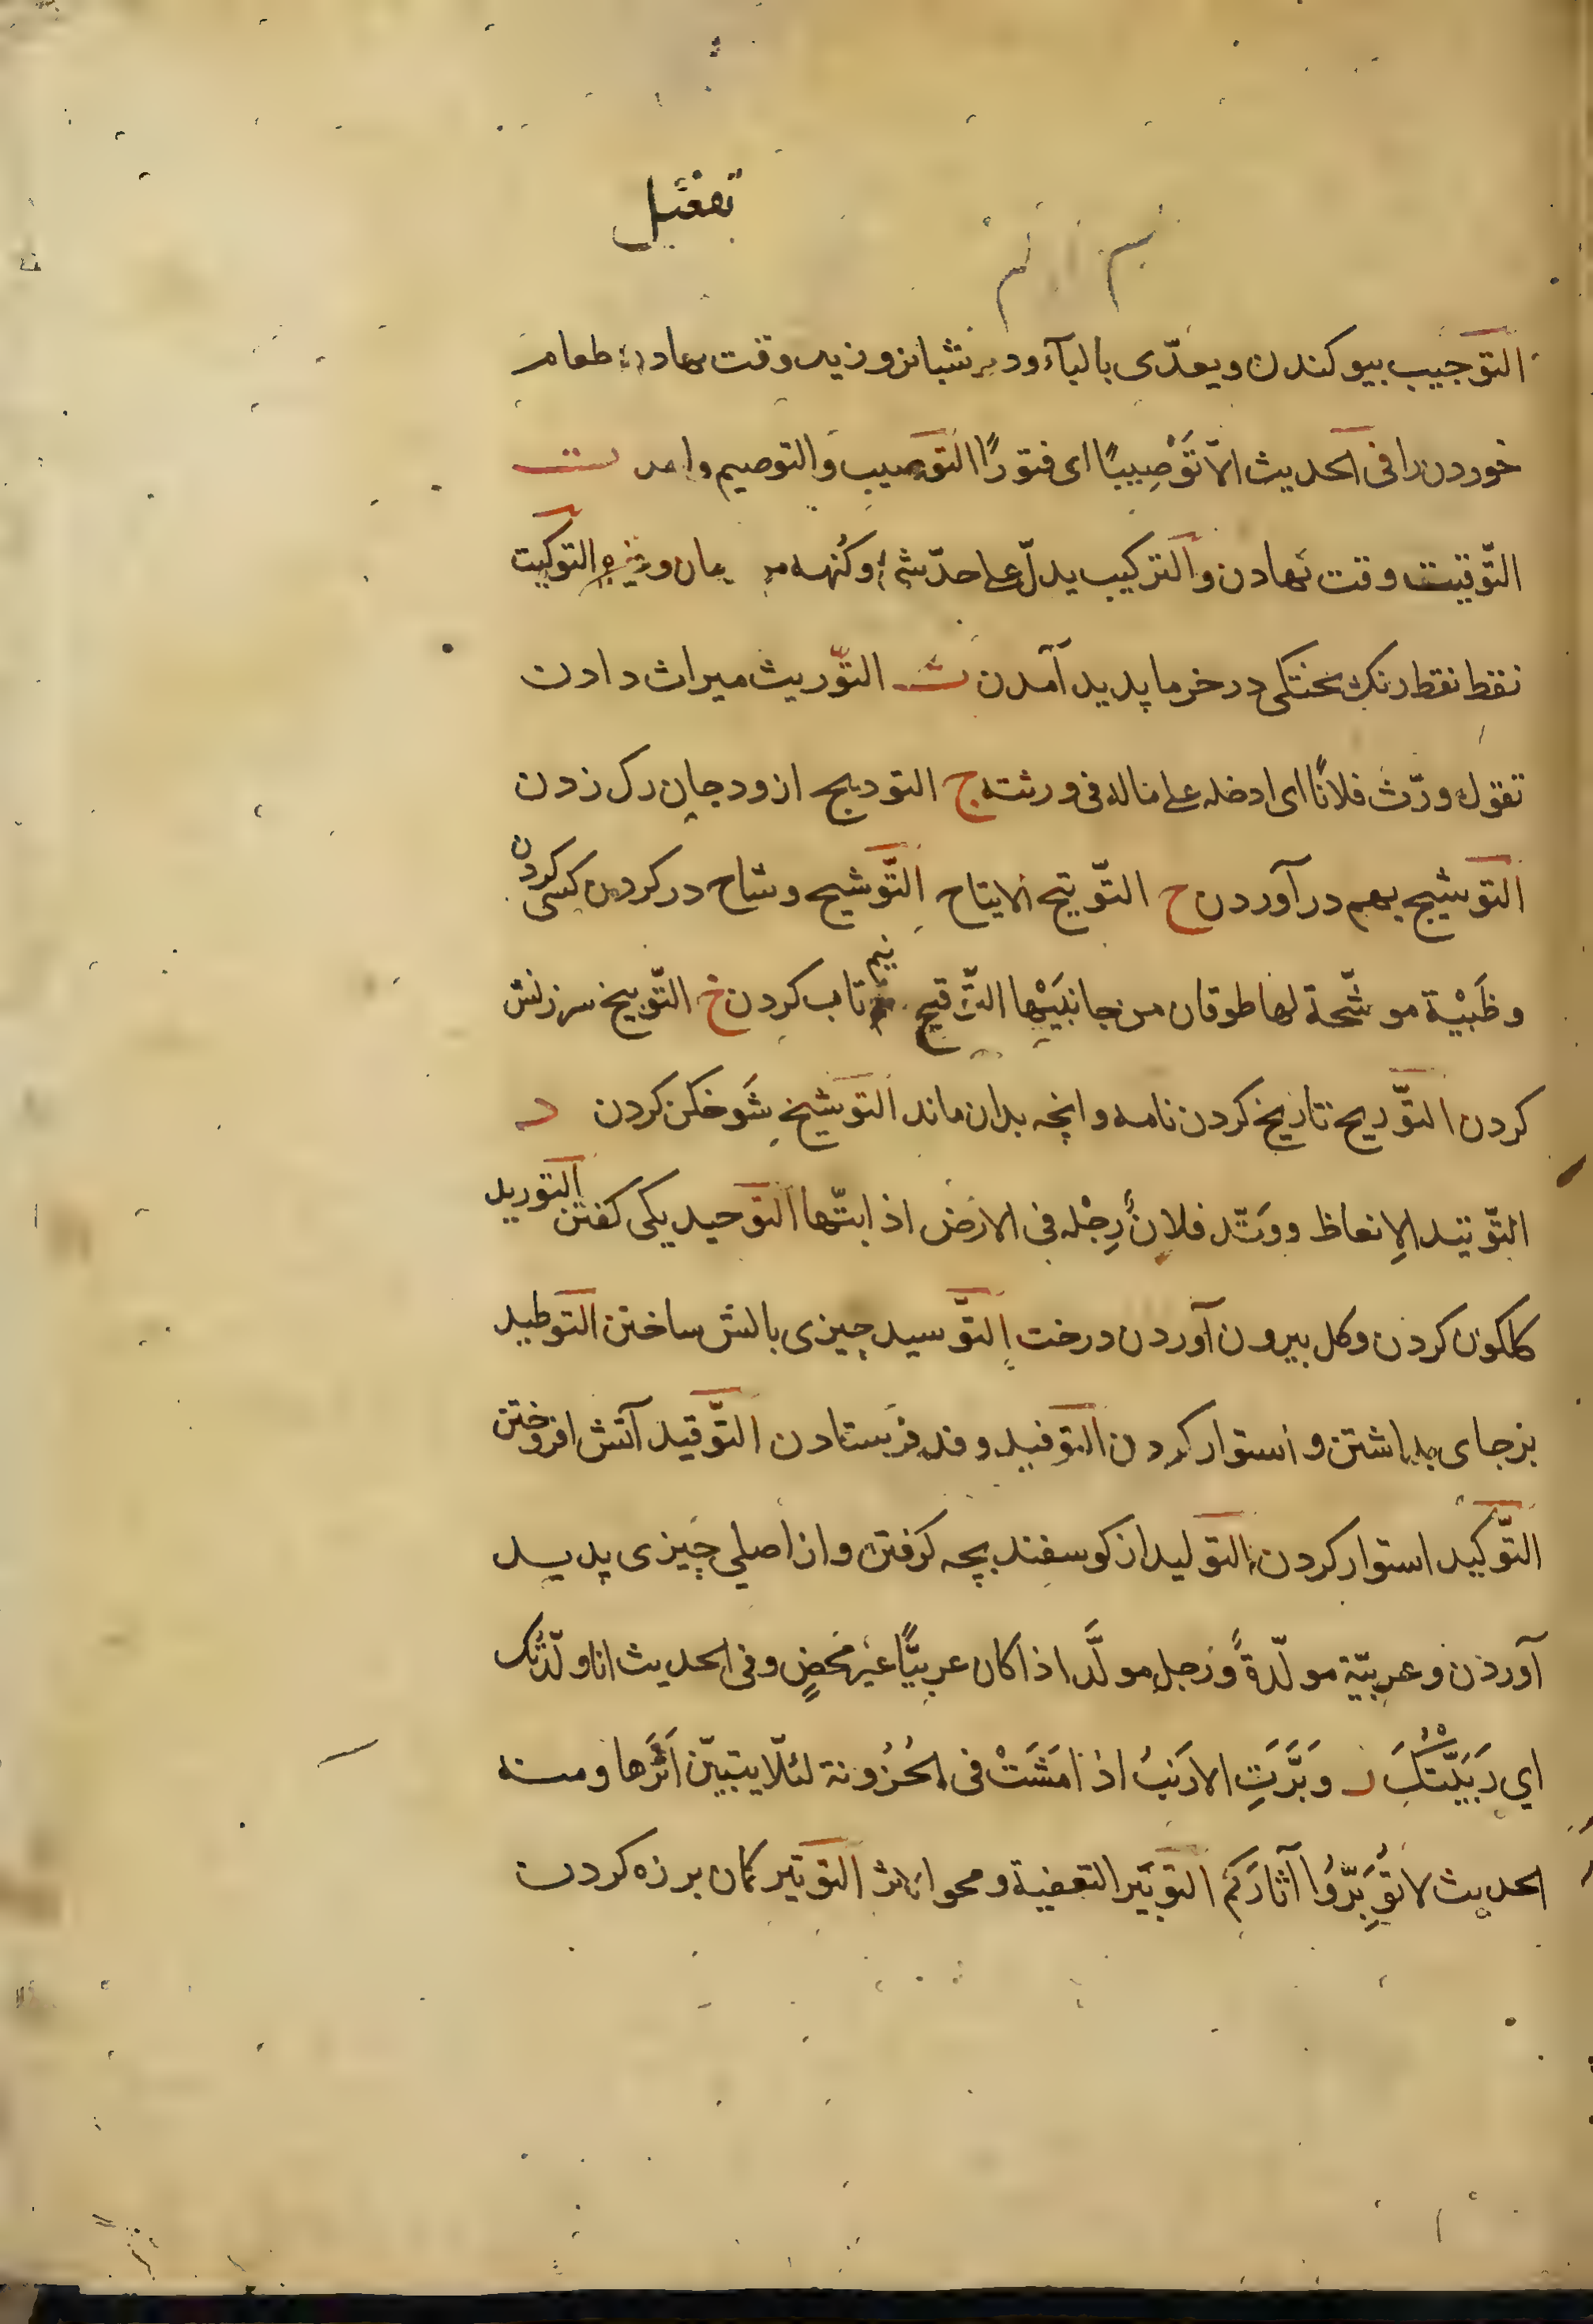 تفعيل
التوجيب بيوكندن ويعدّى بالبآء ودر شبانروزى وقت نهادن طعام
خوردن را فى الحديث الاّ تَوْصِيبًا اى فتورًا التوصيب والتوصيم واحد ت
التّوقيت وقت نهادن والتركيب يدلّ على حدّ شىء وكُنهه زمان وغيره التوكيت
نقط نقط رنك پختكى در خرما پديد آمدن ث التوّريث ميراث دادن
تقول ورّث فلانًا اى ادخله على ماله فى ورثته ج التوديج از ودجان رك زدن
التوشيج بهم در آوردن ح التّوتيح الايتاح التّوشيح وشاح در كردن كسى كردن
وظَبْيَة موشّحة لها طوقان من جانبَيْها التّوقيح نيم تاب كردن خ التّوبيخ سرزنش
كردن التوّريخ تاريخ كردن نامه وانچه بدان ماند التوشيخ شَوخكن كردن د
التّوتيد الاِنعاظ ووَتّد فلانٌ رِجْله فى الارض اذا ثبتها التوَحيد يكى كفتن التوريد
كلكون كردن وكل بيرون آوردن درخت التوّسيد چيزى بالش ساختن التوطيد
بر جاى بداشتن واستوار كردن التوفيد وفد فرستادن التّوقيد آتش افروختن
التّوكيد استوار كردن التوليد از كوسفند بچه كرفتن واز اصلى چيزى پديد
آوردن وعربيّة مولّدةٌ ورجل مولَّد اذا كان عربيًّا غير محضٍ وفى الحديث انا ولّدتُك
اي رَبَّيْتُكَ ر وَبَّرَتِ الارَنبُ اذا مَشَتْ فى الحُزُونة لئلّا يتبيّن اَثَرُها ومنه
الحديث لا تُوَبِّرُوا آثارَكم التوَبير التعفية ومحو الاثر التوَتير كمان بر زه كردن